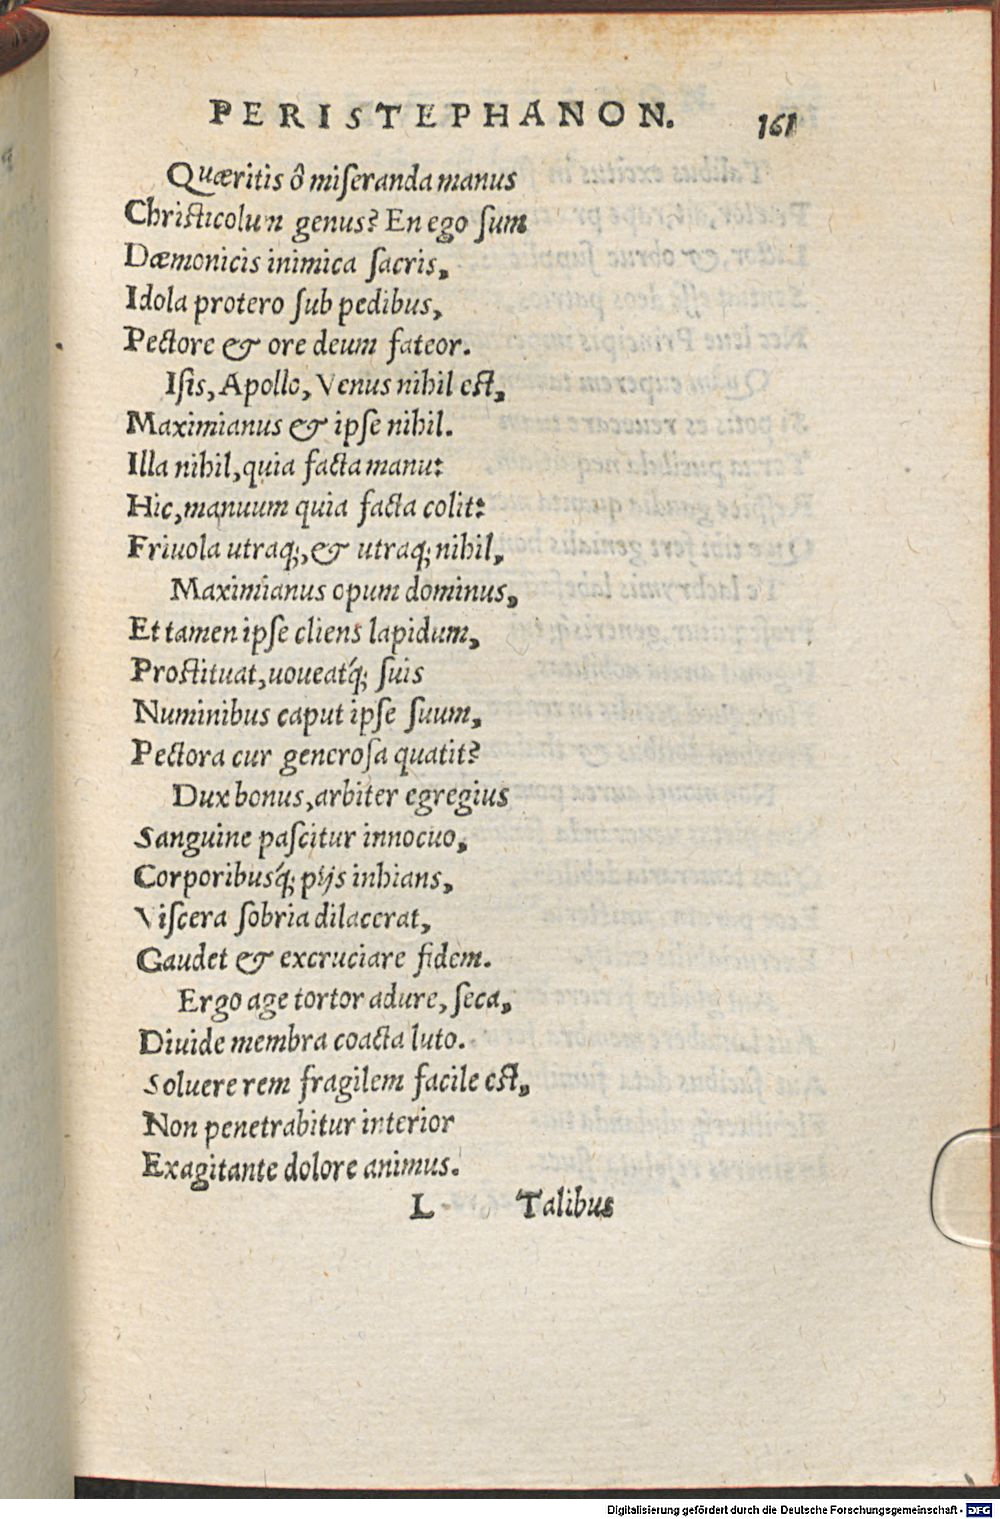 PERISTEPHANON. 161
Quæritis ô miſeranda manus
Chriſticolun genus? En ego ſum
Dæmonicis inimica ſacris,
Idola protero ſub pedibus,
Pectore & ore deum fateor.
Iſis, Apollo, Venus nihil eſt,
Maximianus & ipſe nihil.
Illa nihil, quia facta manu:
Hic, manuum quia facta colit:
Friuola utraq;, & utraq; nihil,
Maximianus opum dominus,
Et tamen ipſe cliens lapidum,
Proſtituat, uoueat'q; ſuis
Numinibus caput ipſe ſuum,
Pectora cur generoſa quatit?
Dux bonus, arbiter egregius
Sanguine paſcitur innocuo,
Corporibus'q; pijs inhians,
Viſcera ſobria dilacerat,
Gaudet & excruciare fidem.
Ergo age tortor adure, ſeca,
Diuide membra coacta luto.
Soluere rem fragilem facile eſt,
Non penetrabitur interior
Exagitante dolore animus.
L Talibus
Digitalisierung gefördert durch die Deutsche Forschungsgemeinschaft - DFG